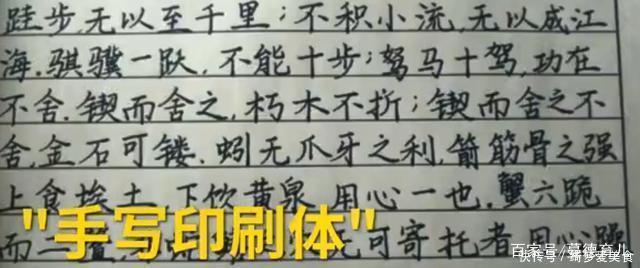 跬步,无以至千里;不积小流,无以成江
海.骐骥一跃,不能十步;驽马十驾,功在
不舍.锲而舍之,朽木不折;锲而舍之不
舍,金石可镂.蚓无爪牙之利,箭筋骨之强
上食埃土 下饮黄泉 用心一也.蟹六跪
"手写印刷体"
而二 无可寄托者用心躁
百家号/
快传号/